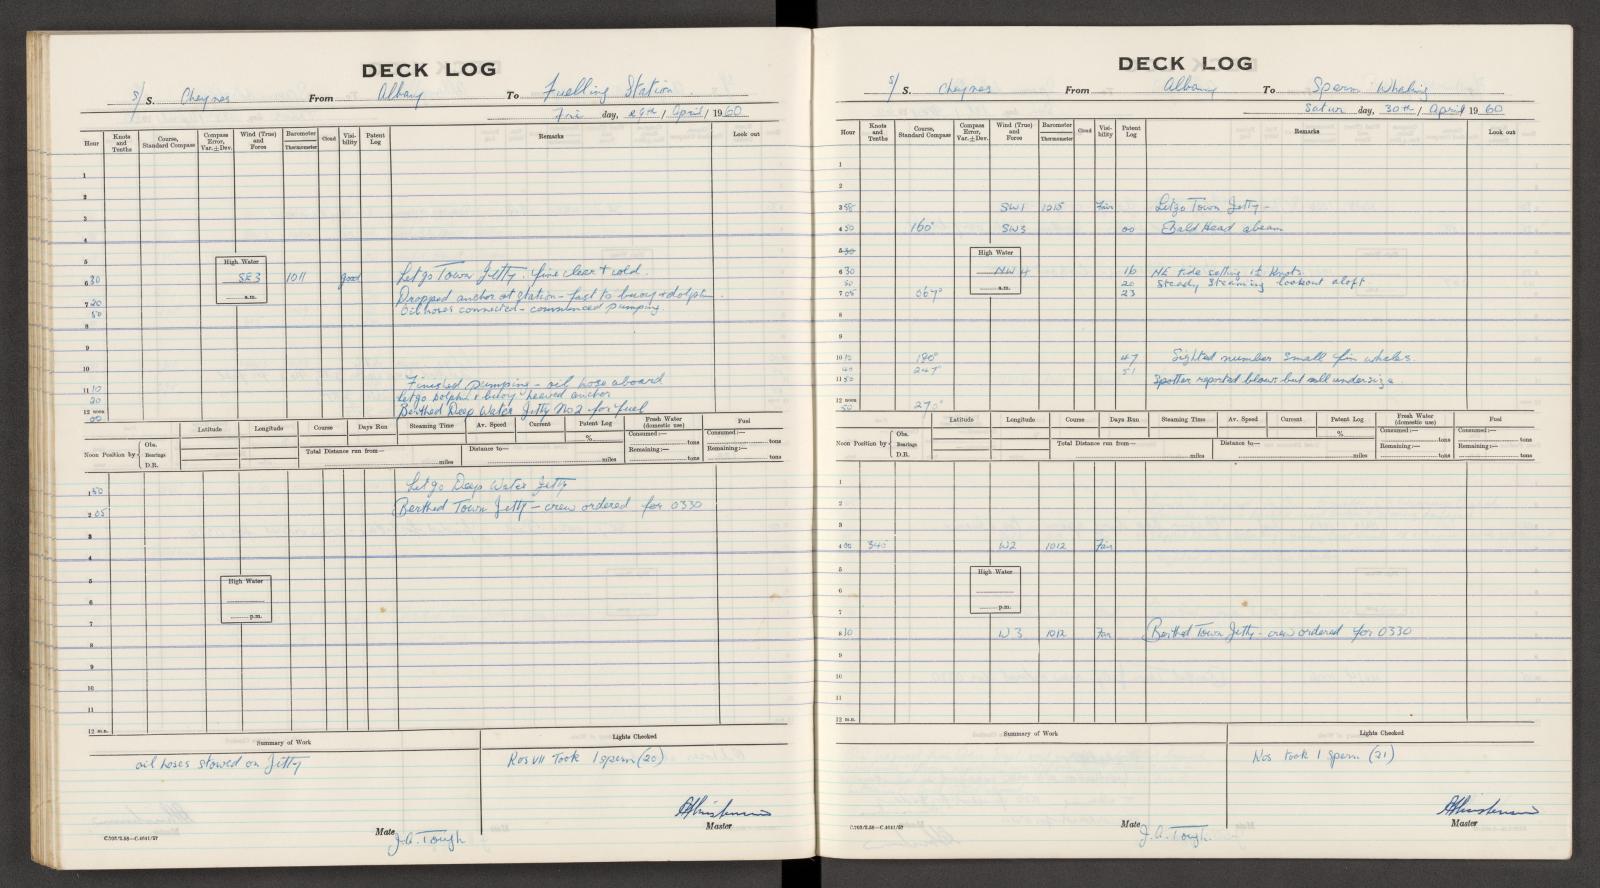 DECK LOG
s/ S. Cheynes From Albany To Fuelling Station
Fri day, 29th / April / 1960
Hour Knots and Tenths Course, Standard Compass Compass Error, Var. ± Dev. Wind (True) and Force Barometer Thermometer Cloud Visi-bility Patent Log Remarks Look out
1
2
3
4
5
High Water
6 30 SE3 1011 good Let go Town Jetty. fine clear + cold.
a.m.
7 20 Dropped anchor at station - fast to buoy + dolph
50 Oil hoses connected - commenced pumping.
8
9
10
Finished pumping - oil hose aboard
11 10 Let go Dolphin + buoy - heaved anchor
20
12 noon Berthed Deep Water Jetty No2 for fuel
00
Latitude Longitude Course Days Run Steaming Time Av. Speed Current Patent Log Fresh Water (domestic use) Fuel
% Consumed:— tons Consumed:— tons
Noon Position by Obs. Bearings D.R. Total Distance run from— miles Distance to— miles Remaining:— tons Remaining:— tons
1 50 Let go Deep Water Jetty
2 05 Berthed Town Jetty - crew ordered for 0330
3
4
5
High Water
6
p.m.
7
8
9
10
11
12 m.n.
Summary of Work Lights Checked
oil hoses stowed on Jetty Ros VII Took 1 sperm (20)
C.702/2.58—C.4641/57
Mate J.A. Tough Master
DECK LOG
s/ S. Cheynes From Albany To Sperm Whaling
Satur day, 30th / April 1960
Hour Knots and Tenths Course, Standard Compass Compass Error, Var. ± Dev. Wind (True) and Force Barometer Thermometer Cloud Visi-bility Patent Log Remarks Look out
1
2
3 55 SW1 1015 Fair Let go Town Jetty -
4 50 160° SW3 00 Bald Head abeam
5 30
High Water
6 30 NW 4 16 NE tide setting 1½ knots.
50 20 Steady Steaming lookout aloft
7 05 067° 23
a.m.
8
9
10 10 190° 47 Sighted number small fin whales.
40 247° 51
11 50 Spotter reported blows but all undersize
12 noon
50 270°
Latitude Longitude Course Days Run Steaming Time Av. Speed Current Patent Log Fresh Water (domestic use) Fuel
% Consumed:— tons Consumed:— tons
Noon Position by Obs. Bearings D.R. Total Distance run from— miles Distance to— miles Remaining:— tons Remaining:— tons
1
2
3
4 00 340° W2 1012 Fair
5
High Water
6
p.m.
7
8 10 W 3 1012 Fair Berthed Town Jetty - crew ordered for 0330
9
10
11
12 m.n.
Summary of Work Lights Checked
Nos took 1 sperm (21)
C.702/2.58—C.4641/57
Mate J.A. Tough. Master